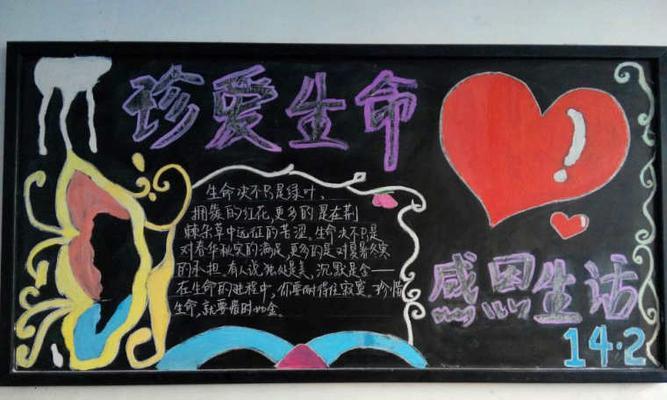 珍爱生命
生命决不只是绿叶、
拥簇的红花,更多的是在荆
棘杂草中远征的苦涩,生命决不只是
对春华秋实的满足,更多的是对夏暑冬寒
的承担.有人说,独处是美,沉默是金——
在生命的进程中,你要耐得住寂寞。珍惜
生命,就要惜时如金。
感恩生活
14·2